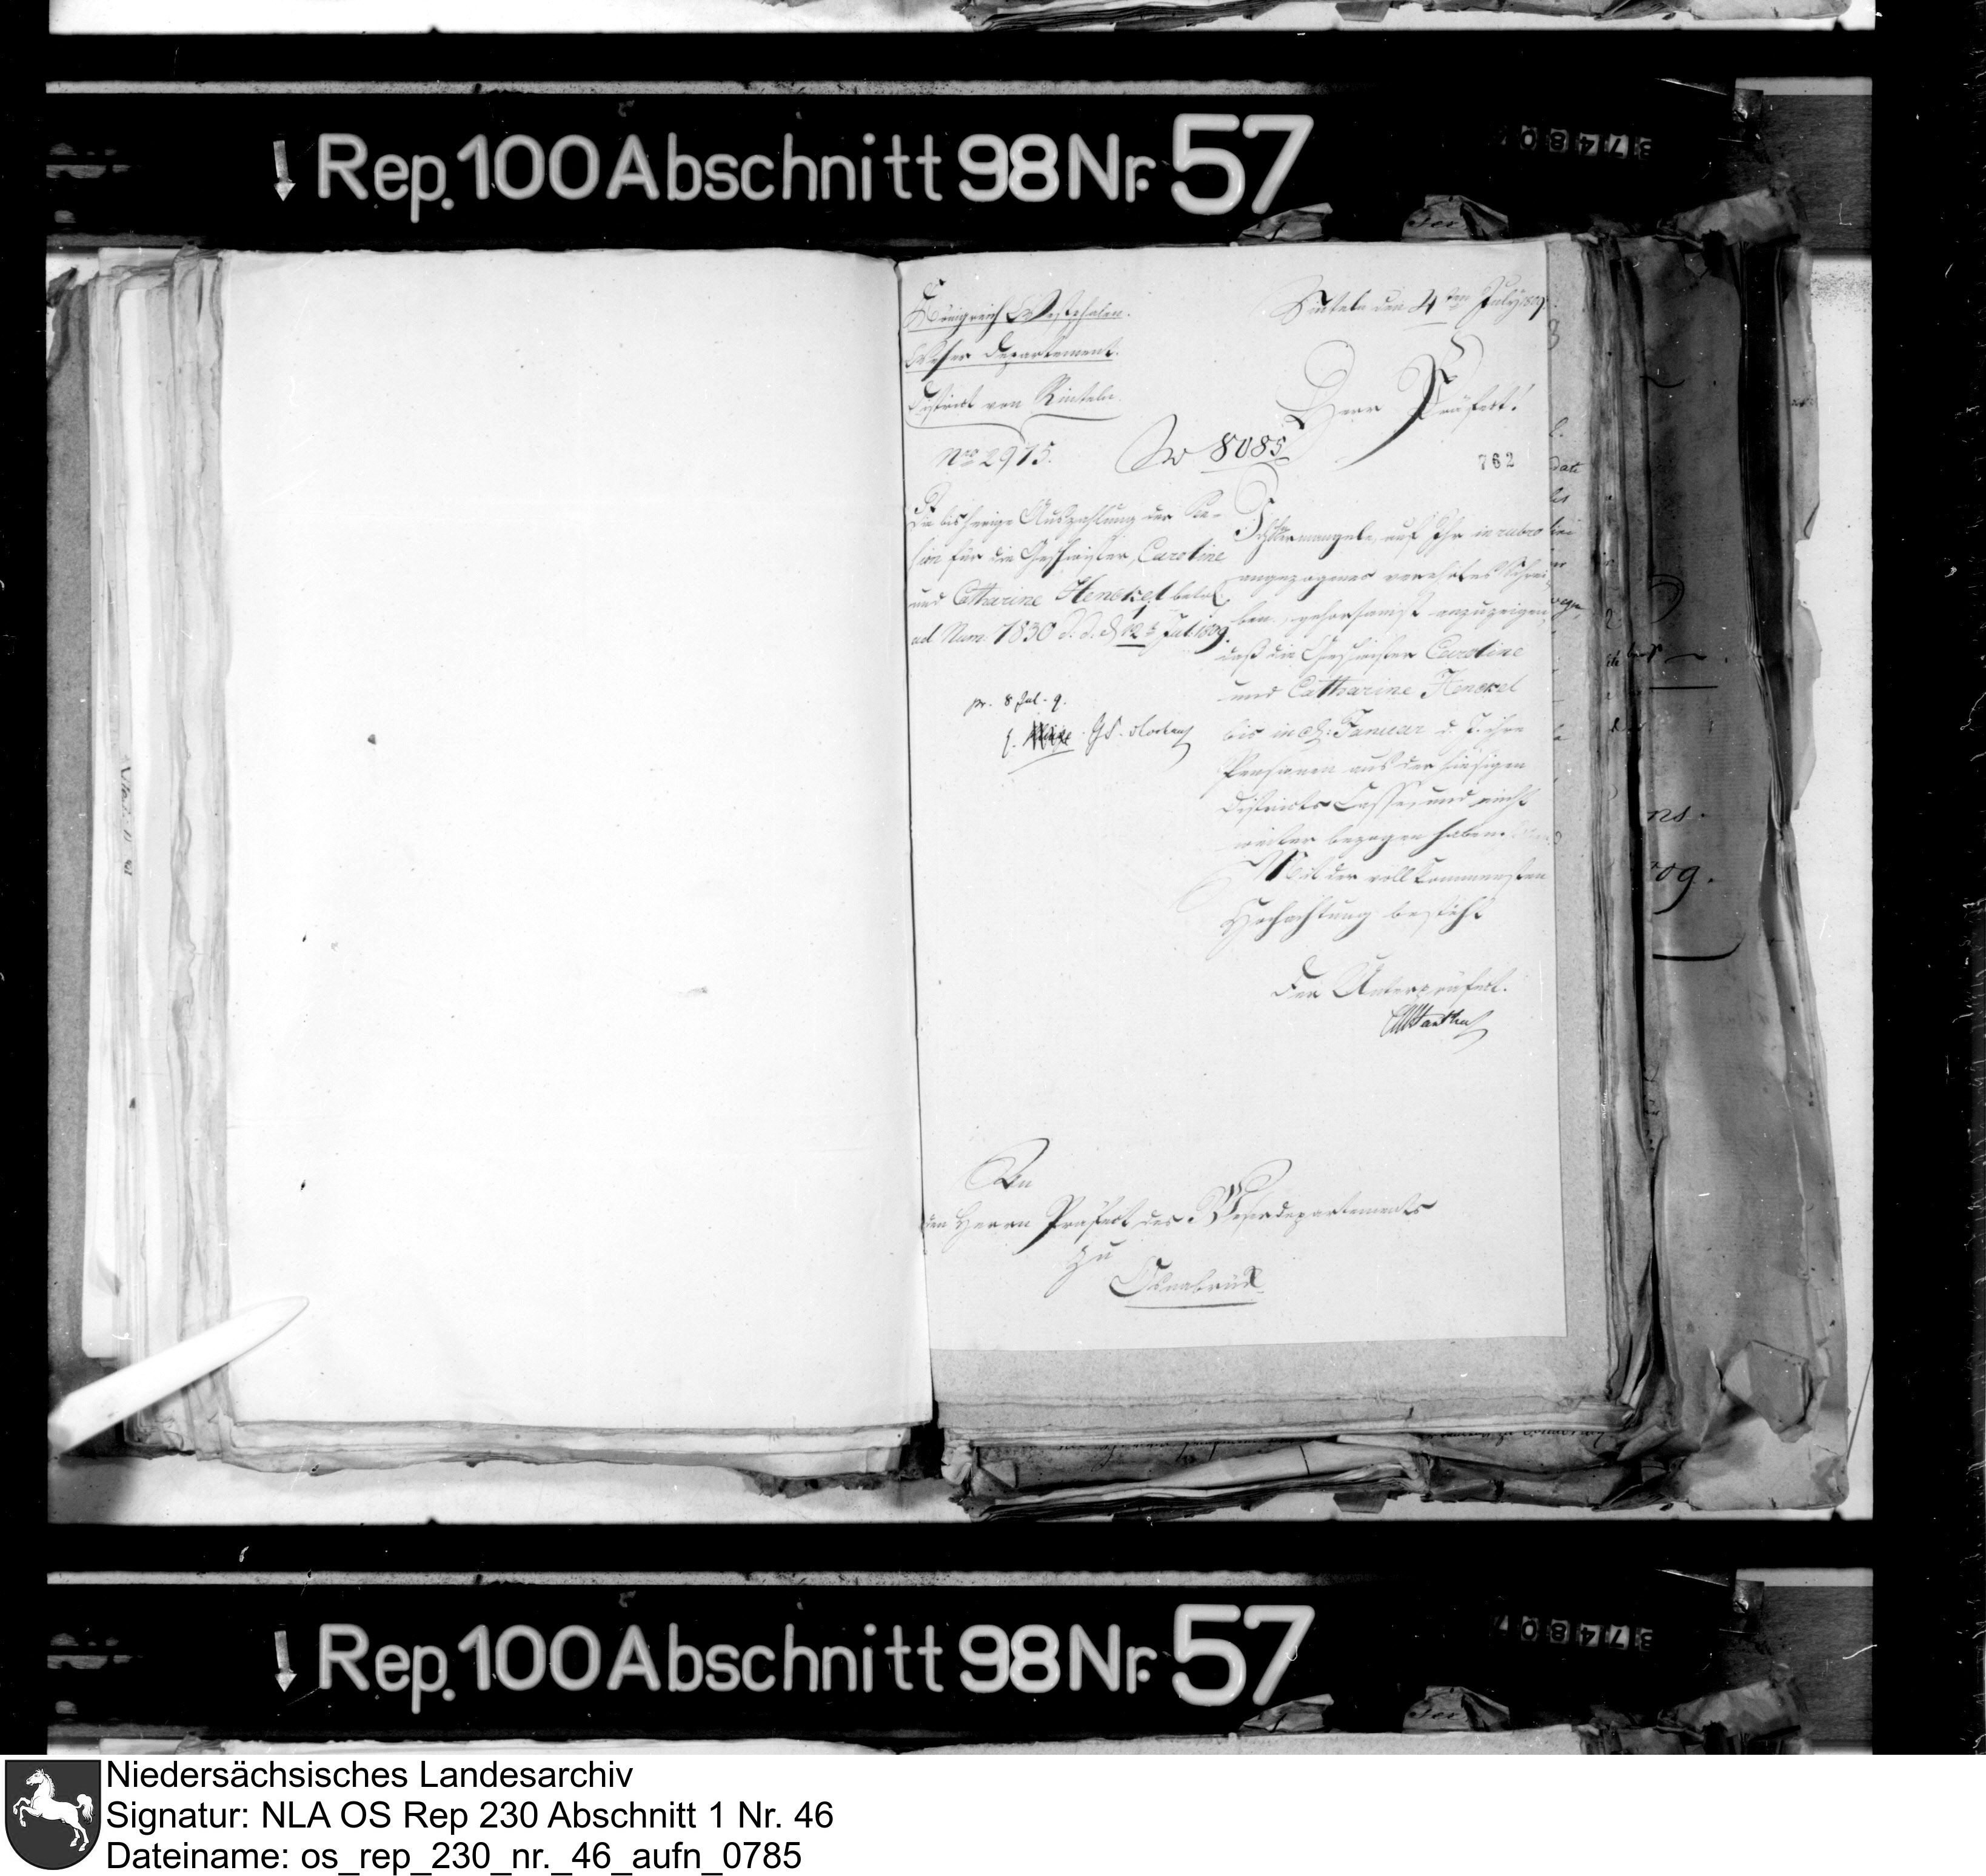 Rep. 100 Abschnitt 98 Nr. 57
Königreich Westphalen.
Weser Departement.
District von Rinteln.
Nro 2975.
Rinteln den 4ten July 1809.
Herr Präfect!
8085
762
Die bisherige Auszahlung der Pen-
sion für die Geschwister, Caroline
und Catharine Henckel betr.
ad Num. 1830 d. d.
pr. 8 Jul. 9.
Ich ermangele, auf Ihr in rubro
angezogenes verehrtes Schrei-
ben, gehorsamst anzuzeigen,
daß die Geschwister Caroline
und Catharine Henckel
bis Januar d. J. ihre
Pensionen aus der hiesigen
Districts Casse, und nicht
weiter bezogen haben.
Mit der vollkommensten
Hochachtung besteht
Der Unterpräfect.
An
den Herrn Präfect des Weserdepartements
zu
Osnabrück
Rep. 100 Abschnitt 98 Nr. 57
Niedersächsisches Landesarchiv
Signatur: NLA OS Rep 230 Abschnitt 1 Nr. 46
Dateiname: os_rep_230_nr._46_aufn_0785